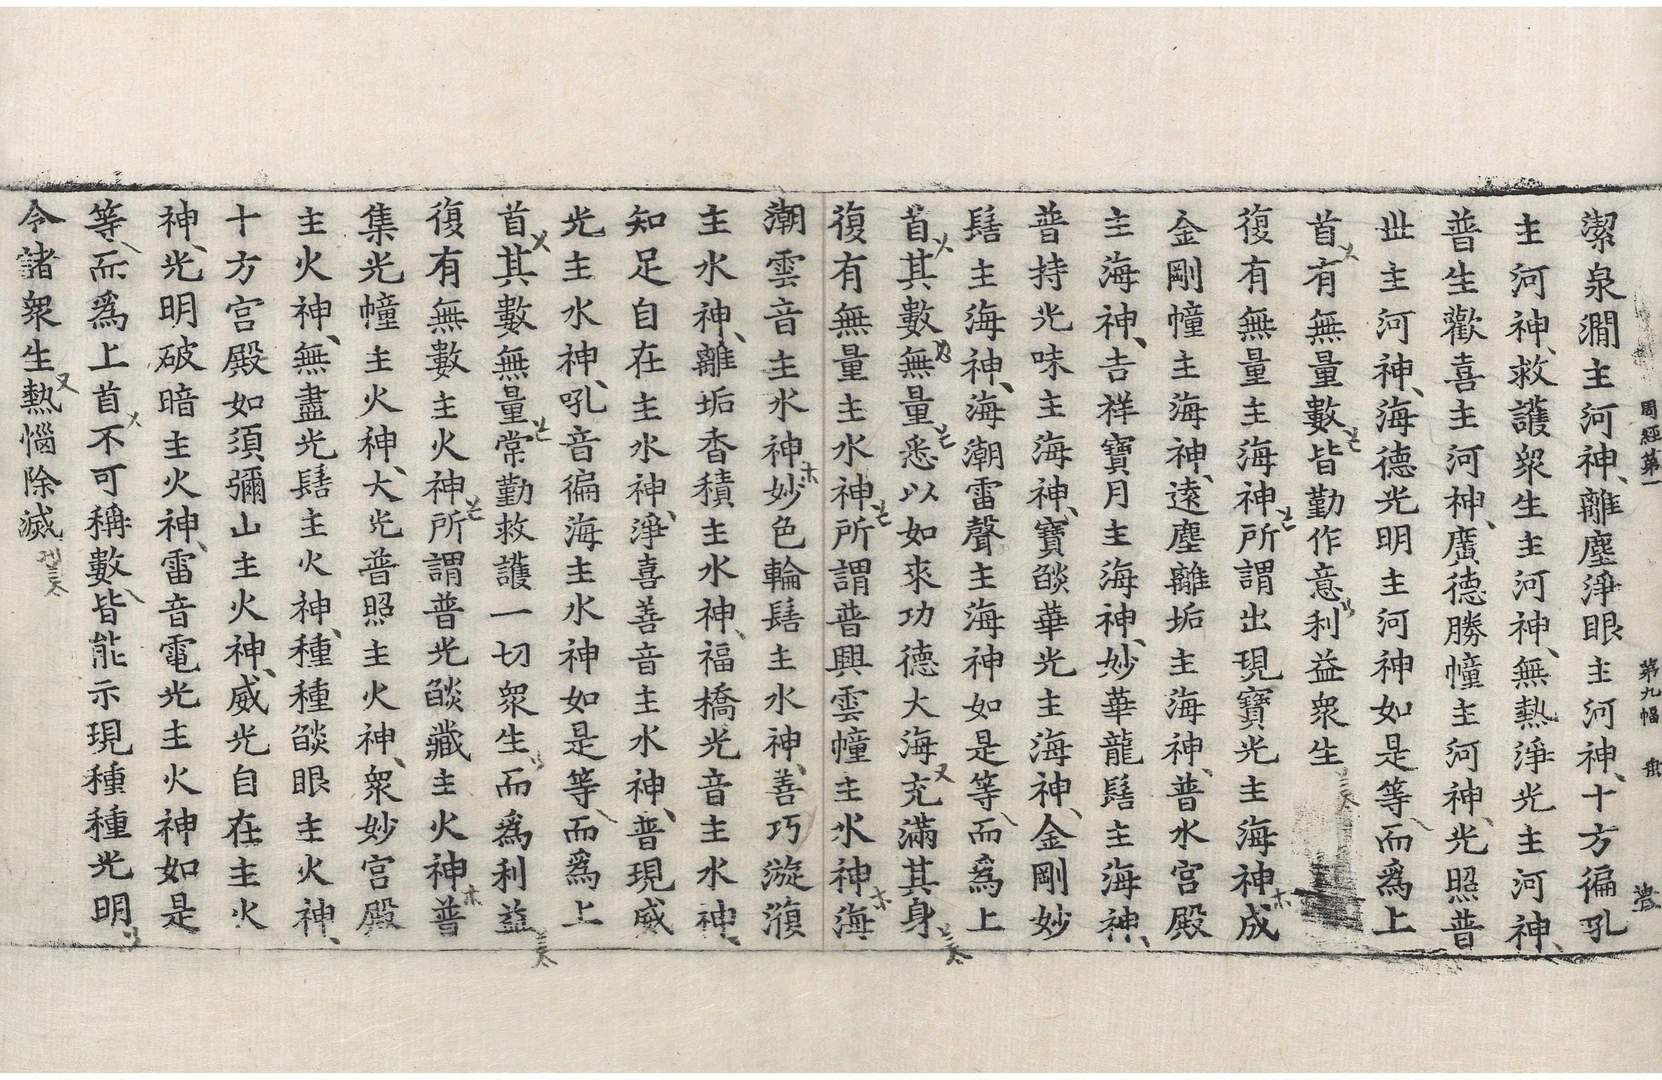 周經第一　第九幅
潔泉澗主河神離塵淨眼主河神十方徧吼
主河神救護衆生主河神無熱淨光主河神
普生歡喜主河神廣德勝幢主河神光照普
世主河神海德光明主河神如是等而爲上
首有無量數皆勤作意利益衆生
復有無量主海神所謂出現寶光主海神成
金剛幢主海神遠塵離垢主海神普水宮殿
主海神吉祥寶月主海神妙華龍髻主海神
普持光味主海神寶燄華光主海神金剛妙
髻主海神海潮雷聲主海神如是等而爲上
首其數無量悉以如來功德大海充滿其身
復有無量主水神所謂普興雲幢主水神海
潮雲音主水神妙色輪髻主水神善巧漩澓
主水神離垢香積主水神福橋光音主水神
知足自在主水神淨喜善音主水神普現威
光主水神吼音徧海主水神如是等而爲上
首其數無量常勤救護一切衆生而爲利益
復有無數主火神所謂普光燄藏主火神普
集光幢主火神大光普照主火神衆妙宮殿
主火神無盡光髻主火神種種燄眼主火神
十方宮殿如須彌山主火神威光自在主火
神光明破暗主火神雷音電光主火神如是
等而爲上首不可稱數皆能示現種種光明
令諸衆生熱惱除滅